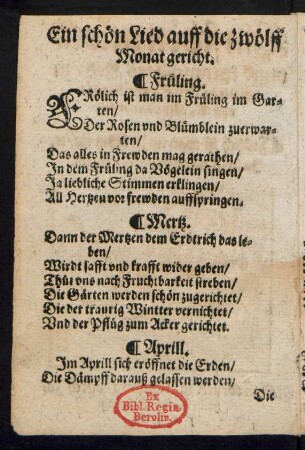 Ein schön Lied auff die zwölff
Monat gericht.
¶ Früling.
FRölich ist man im Früling im Gar-
ten/
Der Rosen vnd Blümblein zuerwar-
ten/
Das alles in Frewden mag gerathen/
In dem Früling da Vögelein singen/
Ja liebliche Stimmen erklingen/
All Hertzen vor frewden auffspringen.
¶ Mertz.
Dann der Mertzen dem Erdtrich das le-
ben/
Wirdt safft vnd krafft wider geben/
Thůt vns nach Fruchtbarkeit streben/
Die Gärten werden schön zugerichtet/
Die der traurig Wintter vernichtet/
Vnd der Pflüg zum Acker gerichtet.
¶ Aprill.
Im Aprill sich eröffnet die Erden/
Die Dämpff darauß gelassen werden/
Die
Ex
Bibl. Regia
Berolin.